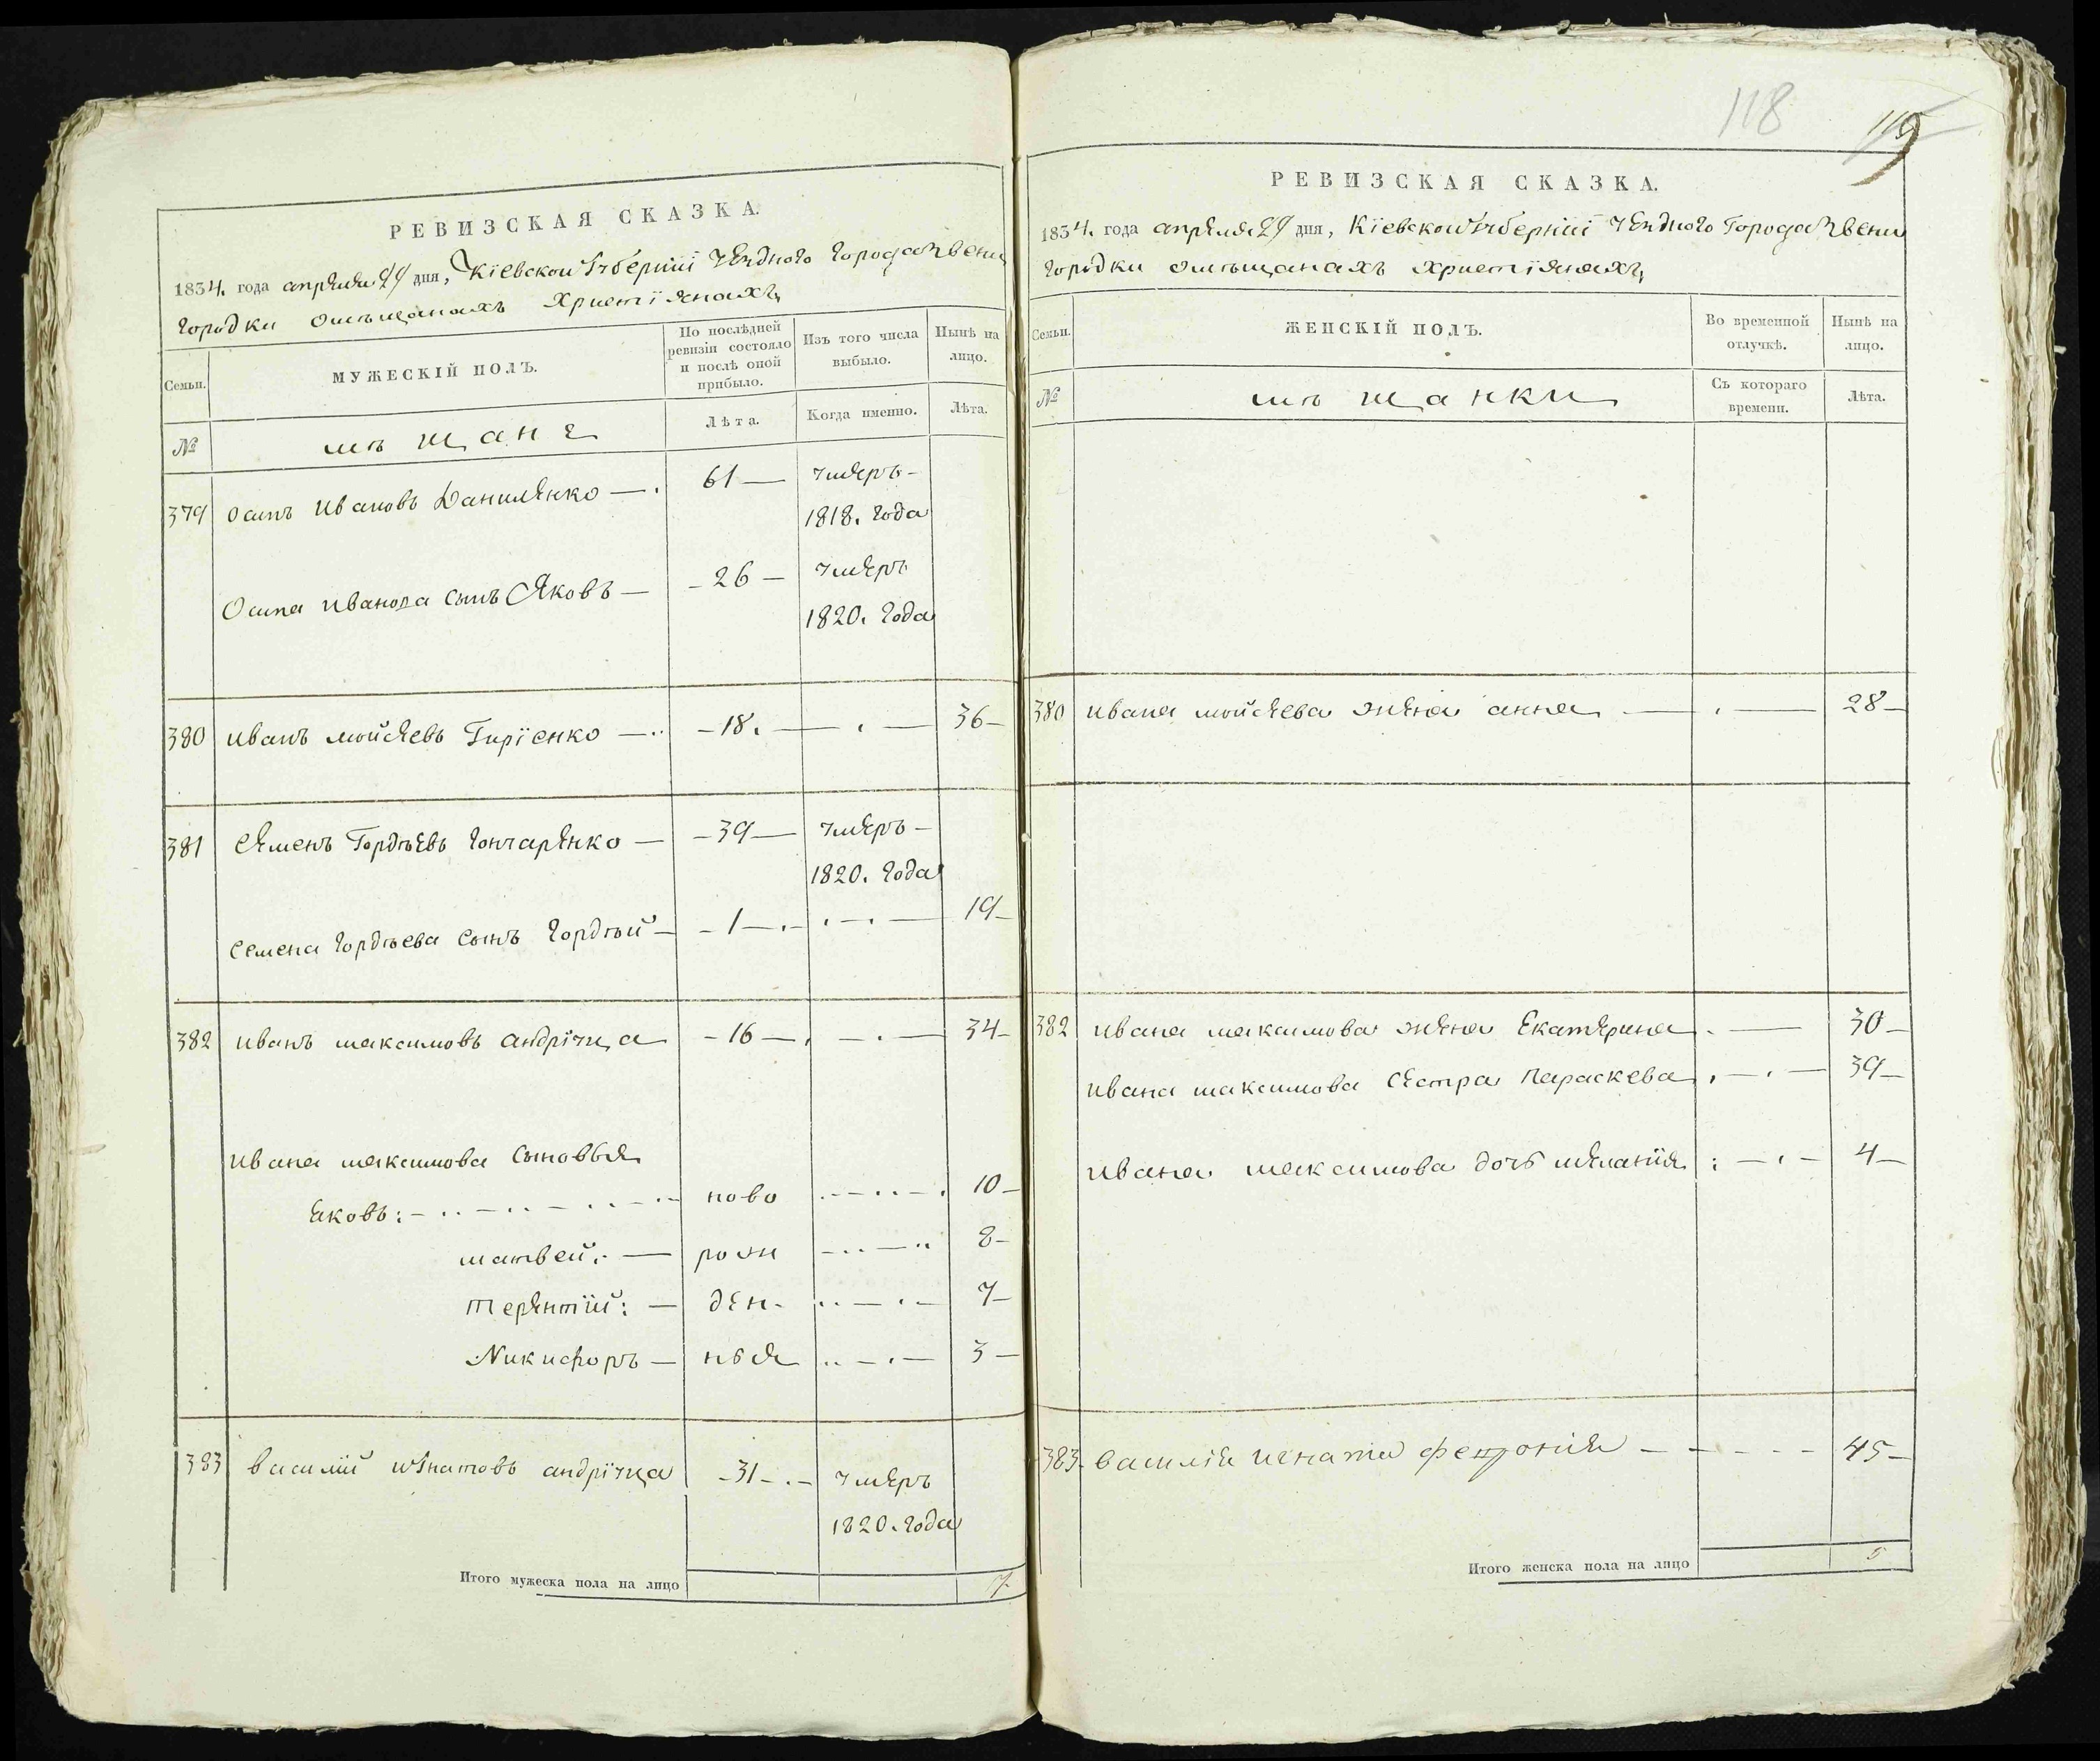 РЕВИЗСКАЯ СКАЗКА.
1834. года апреля 29 дня, Кіевской Губерніи уезднаго Города Звени
городки омѣщанахъ христіянахъ,
Семьи.
МУЖЕСКІЙ ПОЛЪ.
По послѣдней ревизіи состояло и послѣ оной прибыло.
Изъ того числа выбыло.
Нынѣ на лицо.
№
мѣщане
Лѣта.
Когда именно.
Лѣта.
379 осипъ Ивановъ Даниленко — 61 — умеръ —
1818. года
Осипа Иванова сынъ Яковъ — 26 — умеръ
1820. года
380 иванъ мойсеевъ Гиріенко — 18. — 36
381 семенъ Гордѣевъ гончаренко — 39 — умеръ —
1820. года
семена гордѣева сынъ гордѣй — 1 — 19
382 иванъ максимовъ андріуца — 16 — 34
ивана максимова сыновья
Яковъ: ново 10
матвей: — рож 8
терентій: — ден- 7
Никифоръ — нья 3
383 василій игнатовъ андріуца — 31 — умеръ
1820. года
Итого мужеска пола на лицо 7
118
119
РЕВИЗСКАЯ СКАЗКА.
1834. года апреля 29 дня, Кіевской Губерніи уезднаго Города Звени
городки омѣщанахъ христіянахъ,
Семьи.
ЖЕНСКІЙ ПОЛЪ.
Во временной отлучкѣ.
Нынѣ на лицо.
№
мѣщанки
Съ котораго времени.
Лѣта.
380 ивана мойсеева жена анна — 28
382 ивана максимова жена Екатерина — 30
ивана максимова сестра параскева — 39
ивана максимова дочь меланія — 4
383 василія игнатова — 45
Итого женска пола на лицо 5